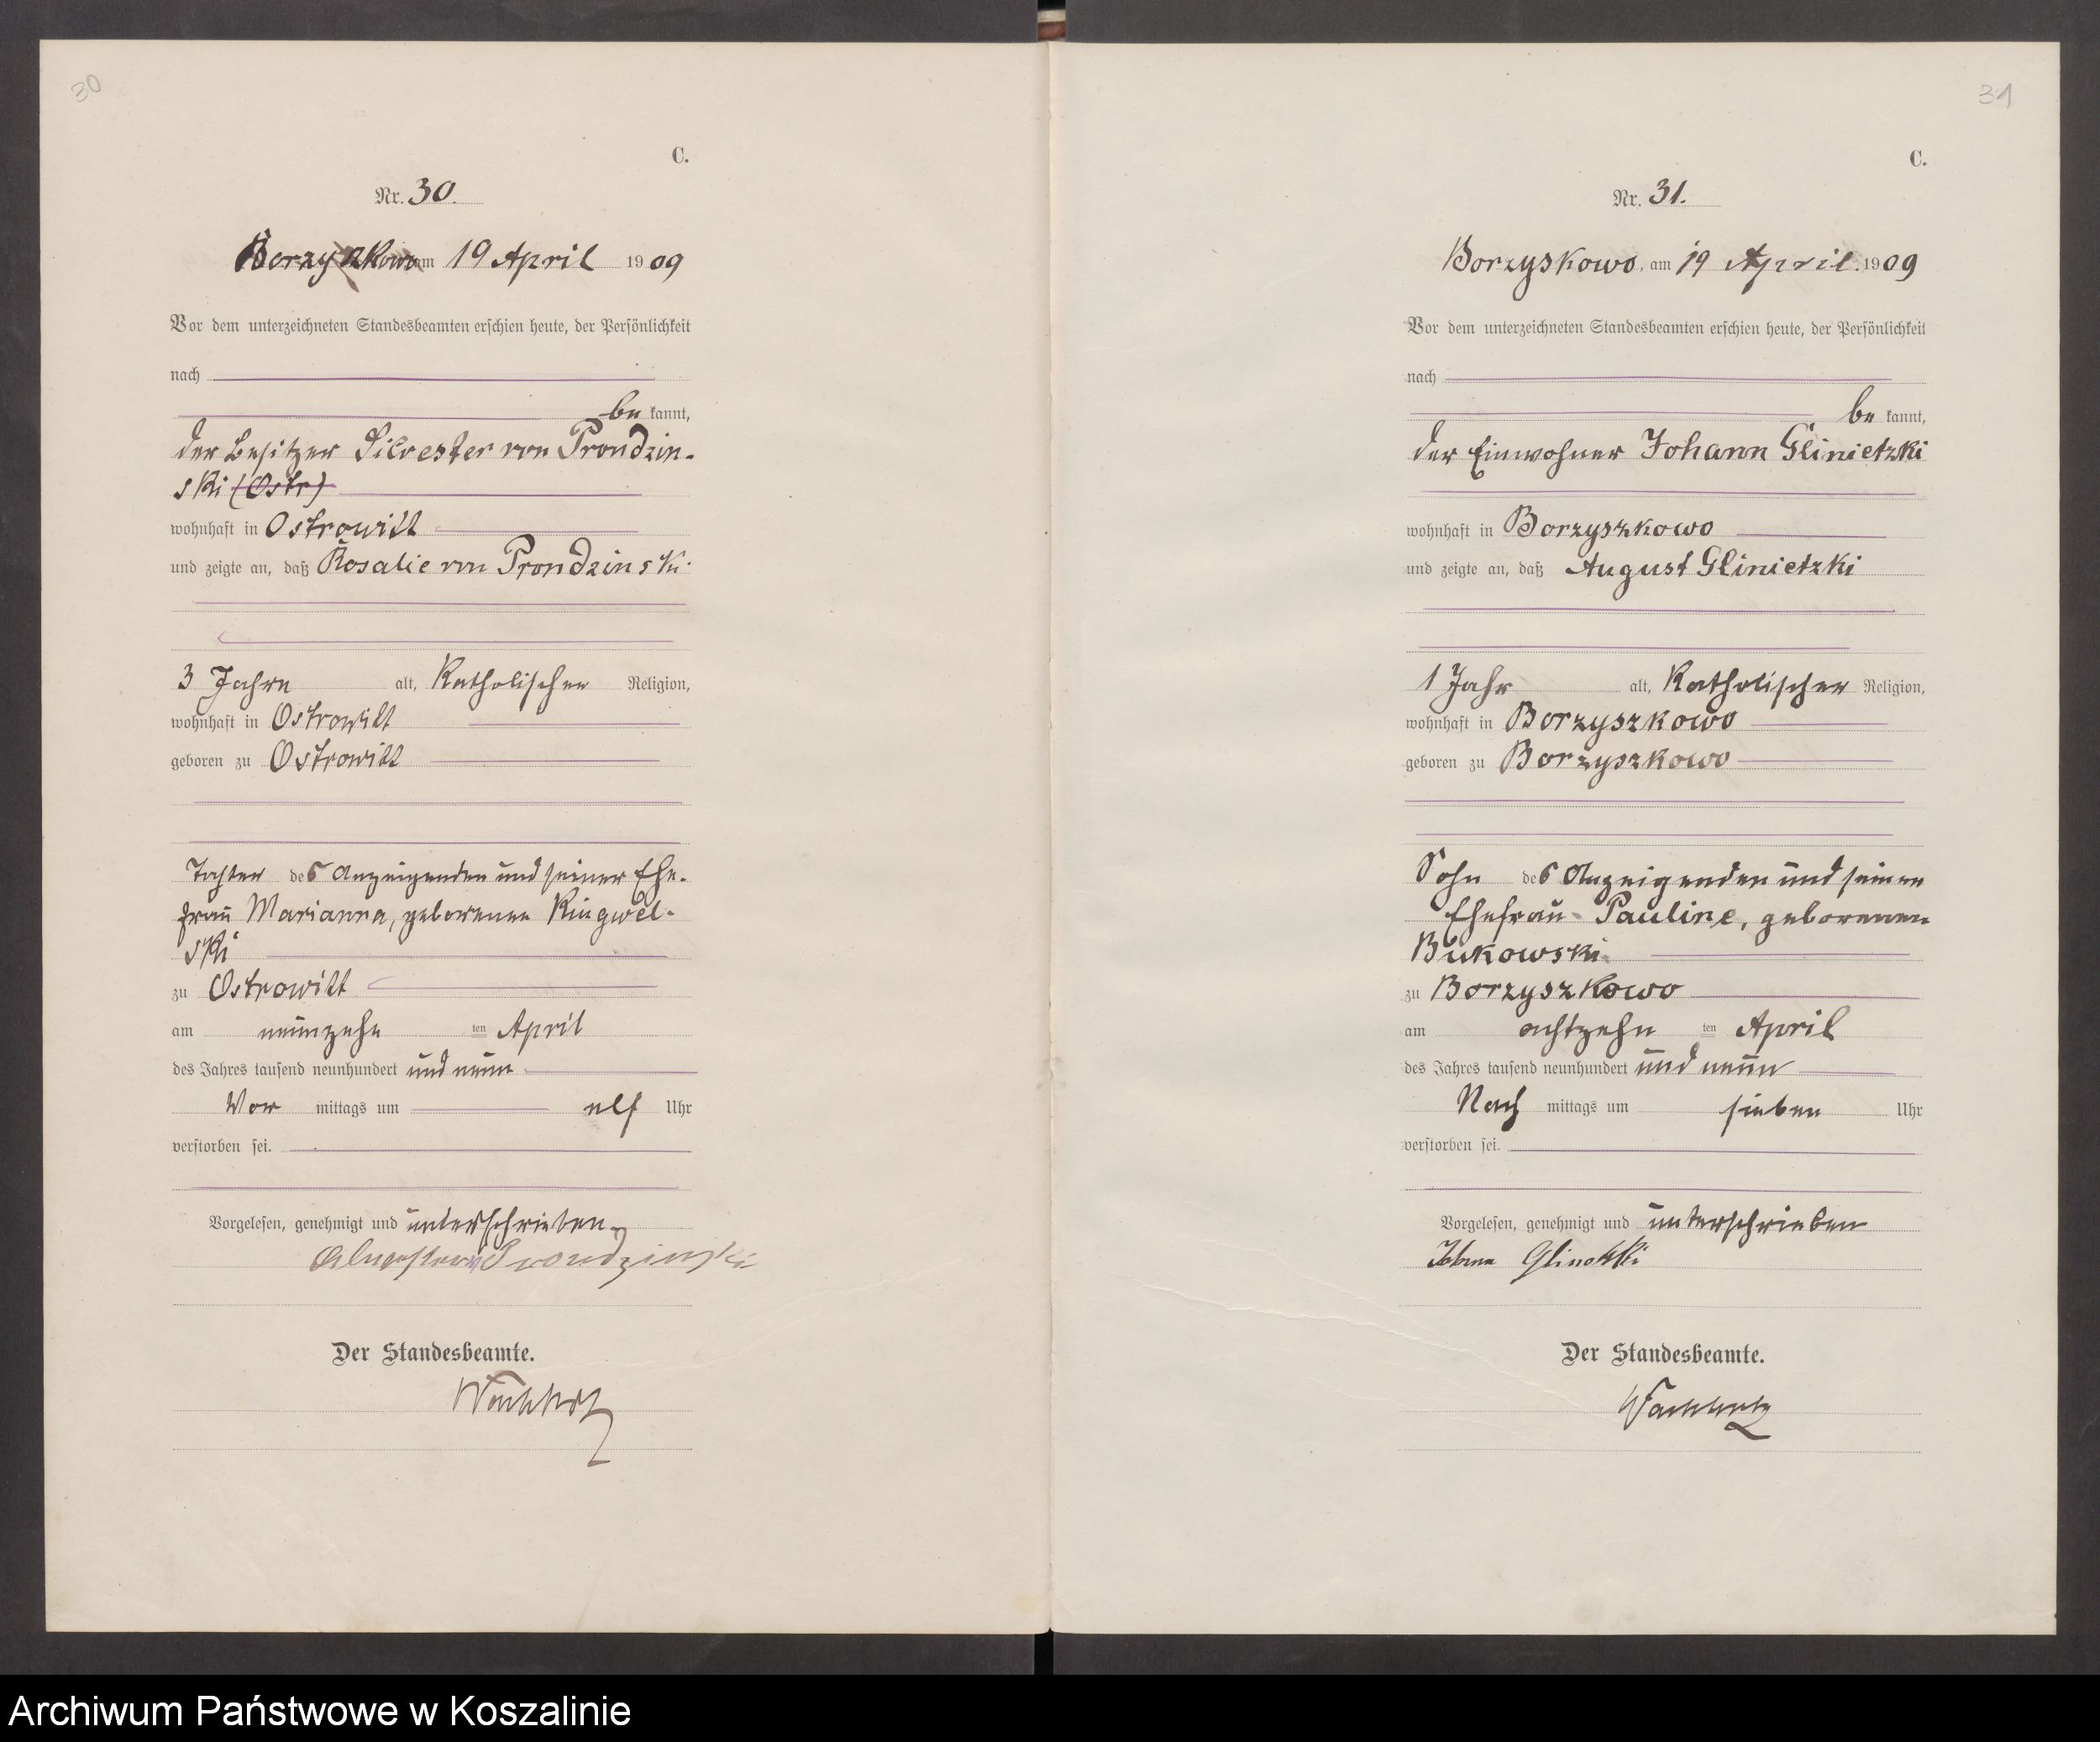 30
C.
Nr. 30.
Borzyszkowo am 19 April 1909
Vor dem unterzeichneten Standesbeamten erschien heute, der Persönlichkeit
nach
be kannt,
der Besitzer Silvester von Prondzin-
ski (Ostr)
wohnhaft in Ostrowitt
und zeigte an, daß Rosalie von Prondzinski
3 Jahre alt, Katholischer Religion,
wohnhaft in Ostrowitt
geboren zu Ostrowitt
Tochter des Anzeigenden und seiner Ehe-
frau Marianna, geborenen
ski
zu Ostrowitt
am neunzehn ten April
des Jahres tausend neunhundert und neun
Vor mittags um elf Uhr
verstorben sei.
Vorgelesen, genehmigt und unterschrieben
Prondzinski
Der Standesbeamte.
31
C.
Nr. 31.
Borzyskowo. am 19 April. 1909
Vor dem unterzeichneten Standesbeamten erschien heute, der Persönlichkeit
nach
be kannt,
der Einwohner Johann Glinietzki
wohnhaft in Borzyszkowo
und zeigte an, daß August Glinietzki
1 Jahr alt, Katholischer Religion,
wohnhaft in Borzyszkowo
geboren zu Borzyszkowo
Sohn des Anzeigenden und seiner
Ehefrau Pauline, geborenen
Bukowski
zu Borzyszkowo
am achtzehn ten April
des Jahres tausend neunhundert und neun
Nach mittags um sieben Uhr
verstorben sei.
Vorgelesen, genehmigt und unterschrieben
Der Standesbeamte.
Archiwum Państwowe w Koszalinie